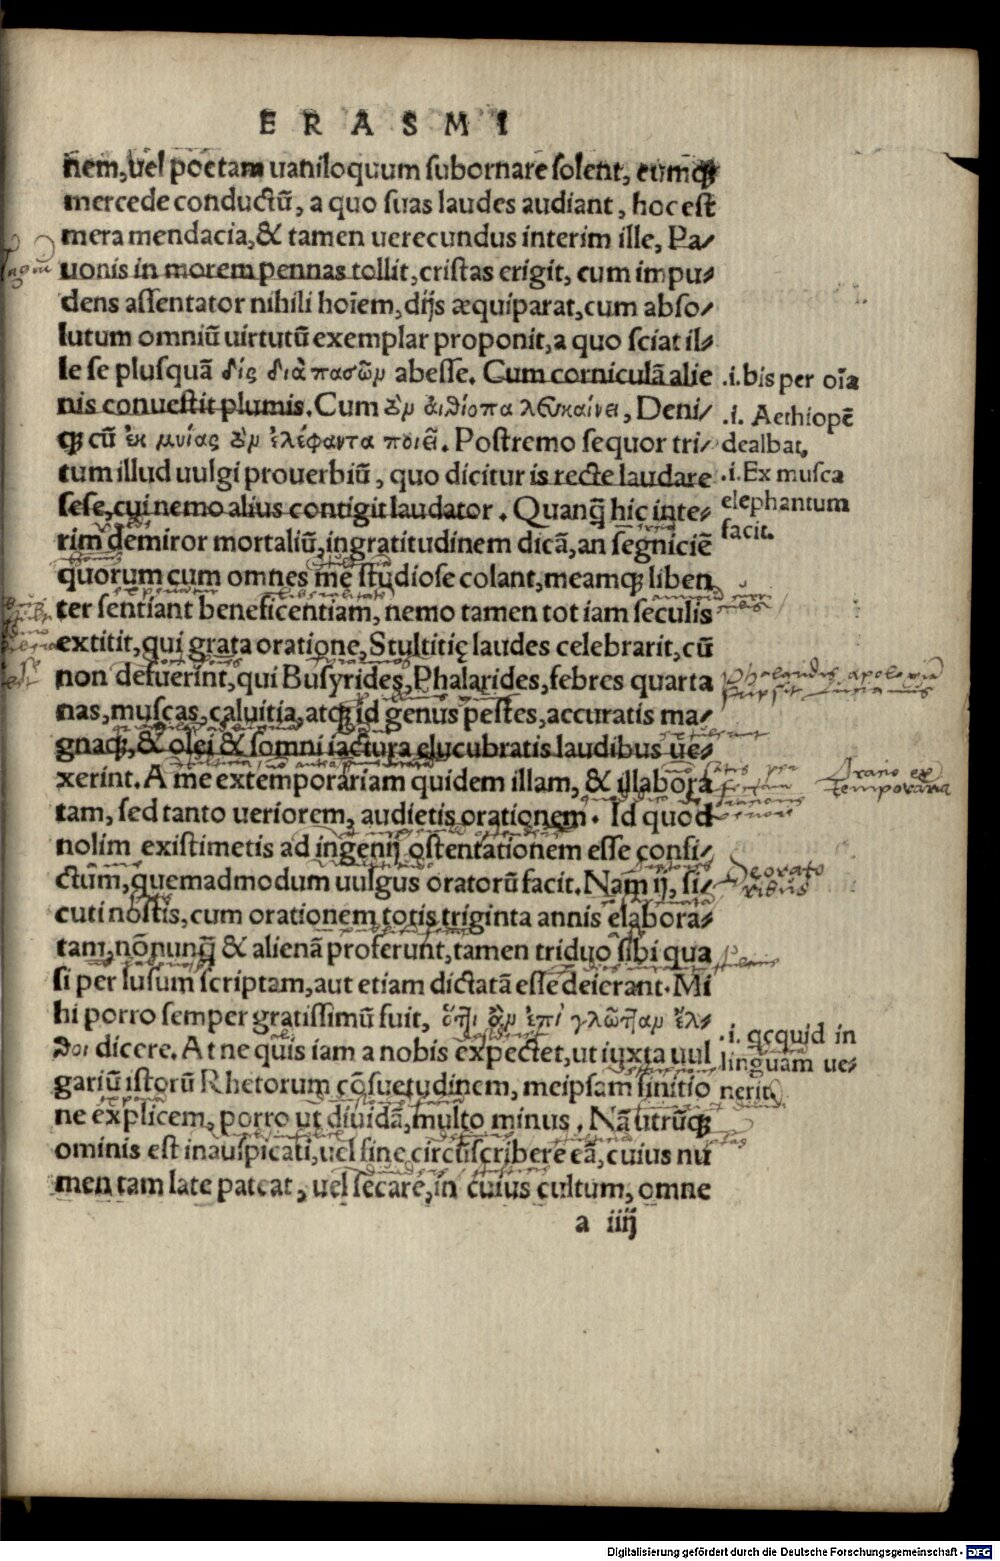 ERASMI
nem, uel poëtam uaniloquum subornare solent, eumqꝫ
mercede conductū, a quo suas laudes audiant, hoc est
mera mendacia, & tamen uerecundus interim ille, Pa/
uonis in morem pennas tollit, cristas erigit, cum impu/
dens assentator nihili hoīem, dijs æquiparat, cum abso/
lutum omniū uirtutū exemplar proponit, a quo sciat il/
le se plusquā δὶς διὰ πασῶν abesse. Cum corniculā alie
nis conuestit plumis. Cum ὂν ἀιθίοπα λευκαίνει, Deni/
qꝫ cū ἐκ μυίας ὂν ἐλέφαντα ποιεῖ. Postremo sequor tri/
tum illud uulgi prouerbiū, quo dicitur is recte laudare
sese, cui nemo alius contigit laudator. Quanq̄ hic inte/
rim demiror mortaliū, ingratitudinem dicā, an segniciē
quorum cum omnes me studiose colant, meamqꝫ liben
ter sentiant beneficentiam, nemo tamen tot iam seculis
extitit, qui grata oratione, Stultitię laudes celebrarit, cū
non defuerint, qui Busyrides, Phalarides, febres quarta
nas, muscas, caluitia, atqꝫ id genus pestes, accuratis ma/
gnaqꝫ, & olei & somni iactura elucubratis laudibus ue/
xerint. A me extemporariam quidem illam, & illabora
tam, sed tanto ueriorem, audietis orationem. Id quod
nolim existimetis ad ingenij ostentationem esse confi/
ctum, quemadmodum uulgus oratorū facit. Nam ij, si/
cuti nostis, cum orationem totis triginta annis elabora/
tam, nōnunq̄ & alienā proferunt, tamen triduo sibi qua
si per lusum scriptam, aut etiam dictatā esse deierant. Mi
hi porro semper gratissimū fuit, ὅτ̃ι ἂν ἐπὶ γλῶτ̃αν ἔλ/
θοι dicere. At ne quis iam a nobis expectet, ut iuxta uul
gariū istorū Rhetorum cōsuetudinem, meipsam finitio
ne explicem, porro ut diuidā, multo minus. Nā utrūqꝫ
ominis est inauspicati, uel fine circūscribere eā, cuius nu
men tam late pateat, uel secare, in cuius cultum, omne
a iiij
.i. bis per oīa
.i. Aethiopē
dealbat,
.i. Ex musca
elephantum
facit.
Phalaridis apologia
scripsit Lucianus
Oratio ex
temporaria
De orato
ribus
.i. qcquid in
linguam ue/
nerit.
Digitalisierung gefördert durch die Deutsche Forschungsgemeinschaft - DFG